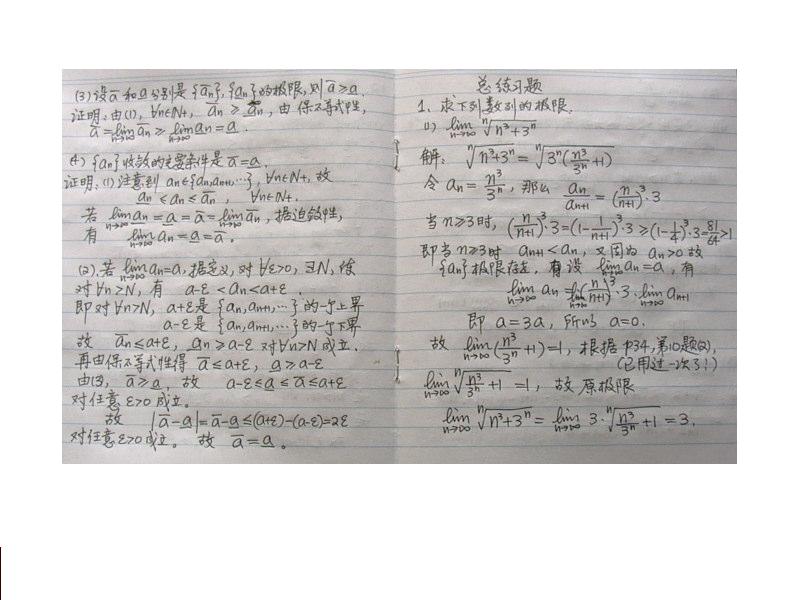 (3) 设 a̅ 和 a̲ 分别是 {a̅ₙ}, {a̲ₙ} 的极限, 则 a̅ ≥ a̲.
证明: 由(1), ∀n∈N₊, a̅ₙ ≥ a̲ₙ, 由保不等式性,
a̅ = lim_{n→∞} a̅ₙ ≥ lim_{n→∞} a̲ₙ = a̲.
(4) {aₙ} 收敛的充要条件是 a̅ = a̲.
证明: (1) 注意到 aₙ ∈ {aₙ, aₙ₊₁, ⋯}, ∀n∈N₊, 故
a̲ₙ ≤ aₙ ≤ a̅ₙ, ∀n∈N₊.
若 lim_{n→∞} a̲ₙ = a̲ = a̅ = lim_{n→∞} a̅ₙ, 据迫敛性,
有 lim_{n→∞} aₙ = a̲ = a̅.
(2). 若 lim_{n→∞} aₙ = a, 据定义, 对 ∀ε>0, ∃N, 使
对 ∀n>N, 有 a-ε < aₙ < a+ε.
即对 ∀n>N, a+ε 是 {aₙ, aₙ₊₁, ⋯} 的一个上界
a-ε 是 {aₙ, aₙ₊₁, ⋯} 的一个下界
故 a̅ₙ ≤ a+ε, a̲ₙ ≥ a-ε 对 ∀n>N 成立.
再由保不等式性得 a̅ ≤ a+ε, a̲ ≥ a-ε
由(3), a̅ ≥ a̲, 故 a-ε ≤ a̲ ≤ a̅ ≤ a+ε
对任意 ε>0 成立.
故 |a̅-a̲| = a̅-a̲ ≤ (a+ε)-(a-ε) = 2ε
对任意 ε>0 成立。故 a̅ = a̲。
总练习题
1、求下列数列的极限.
(1) lim_{n→∞} ⁿ√(n³+3ⁿ)
解: ⁿ√(n³+3ⁿ) = ⁿ√(3ⁿ(n³/3ⁿ+1))
令 aₙ = n³/3ⁿ, 那么 aₙ/aₙ₊₁ = (n/(n+1))³·3
当 n≥3时, (n/(n+1))³·3 = (1-1/(n+1))³·3 ≥ (1-1/4)³·3 = 81/64 > 1
即当 n≥3时 aₙ₊₁ < aₙ, 又因为 aₙ>0 故
{aₙ} 极限存在, 设 lim_{n→∞} aₙ = a, 有
lim_{n→∞} aₙ = lim_{n→∞} (n/(n+1))³·3·lim_{n→∞} aₙ₊₁
即 a = 3a, 所以 a=0.
故 lim_{n→∞} (n³/3ⁿ+1) = 1, 根据 P34, 第10题(2),
(已用过一次了!)
lim_{n→∞} ⁿ√(n³/3ⁿ+1) = 1, 故 原极限
lim_{n→∞} ⁿ√(n³+3ⁿ) = lim_{n→∞} 3·ⁿ√(n³/3ⁿ+1) = 3.